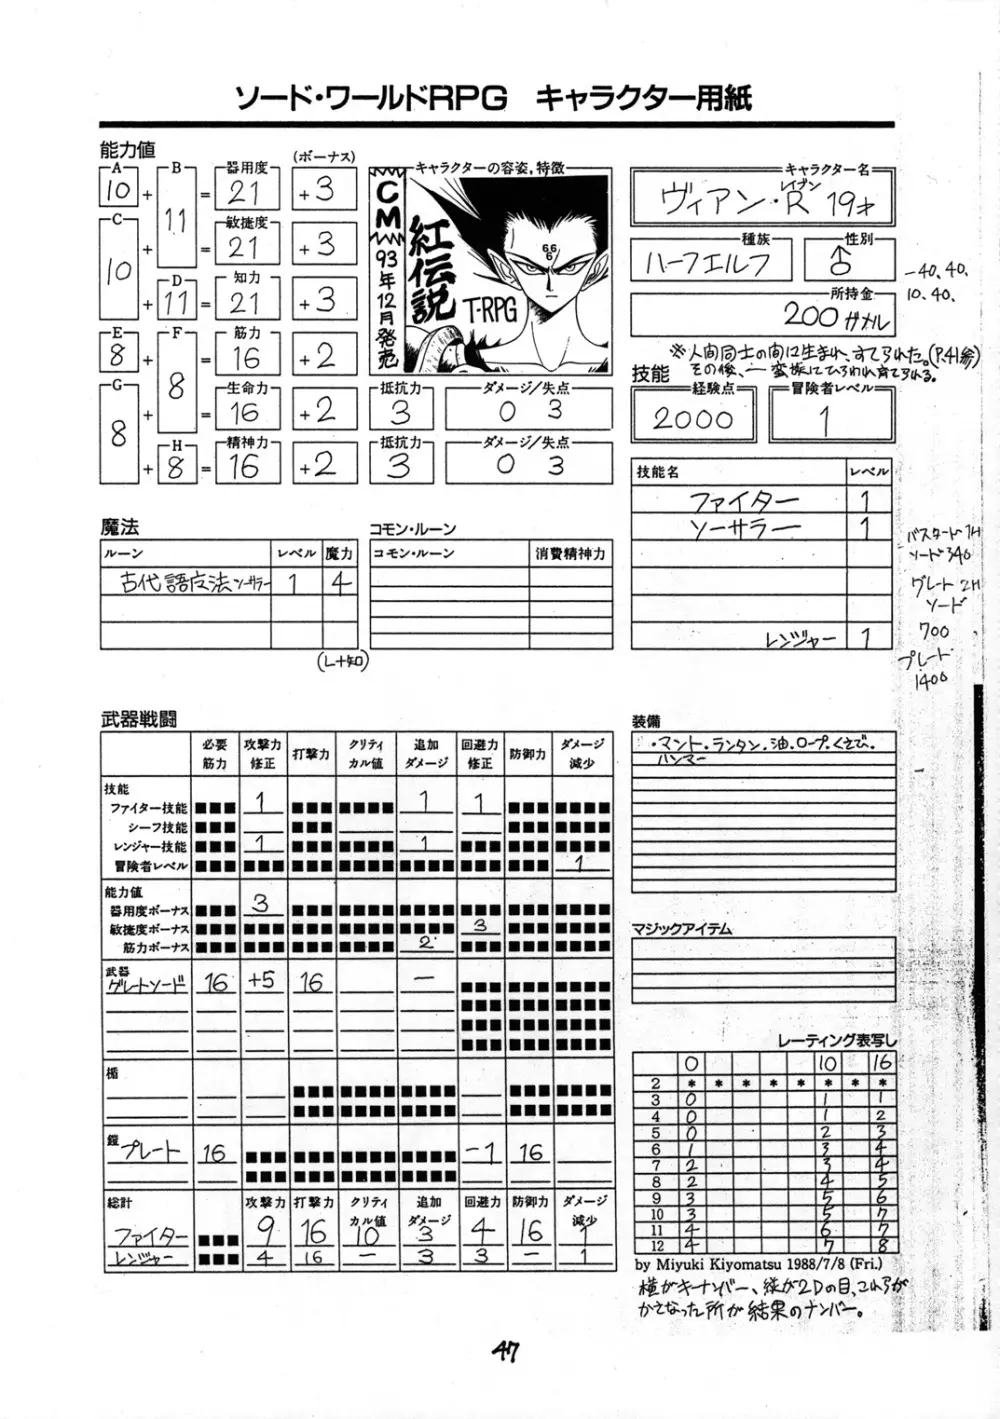 ソード・ワールドRPG　キャラクター用紙
能力値
A 10 + B 11 = 器用度 21 (ボーナス) +3
C 10 + = 敏捷度 21 +3
+ D 11 = 知力 21 +3
E 8 + F 8 = 筋力 16 +2
G 8 + = 生命力 16 +2 抵抗力 3 ダメージ/失点 0 3
+ H 8 = 精神力 16 +2 抵抗力 3 ダメージ/失点 0 3
キャラクターの容姿,特徴
CM
93年12月発売
紅伝説
T-RPG
666
キャラクター名
レイブン
ヴィアン・R 19才
種族 ハーフエルフ
性別 ♂
所持金 200ガメル
-40、40、
10、40、
※人間同士の間に生まれ、すてられた。(P.41参)
その後、一蛮族にひろわれ育てられる。
技能
経験点 2000
冒険者レベル 1
技能名 レベル
ファイター 1
ソーサラー 1
レンジャー 1
バスタード 1H
ソード 340
グレート 2H
ソード
700
プレート
1400
魔法
ルーン レベル 魔力
古代語魔法ソーサラー 1 4
(L+知)
コモン・ルーン
コモン・ルーン 消費精神力
武器戦闘
必要筋力 攻撃力修正 打撃力 クリティカル値 追加ダメージ 回避力修正 防御力 ダメージ減少
技能
ファイター技能 1 1 1
シーフ技能
レンジャー技能 1 1
冒険者レベル 1
能力値
器用度ボーナス 3
敏捷度ボーナス 3
筋力ボーナス 2
武器
グレートソード 16 +5 16 —
楯
鎧
プレート 16 -1 16
総計 攻撃力 打撃力 クリティカル値 追加ダメージ 回避力 防御力 ダメージ減少
ファイター 9 16 10 3 4 16 1
レンジャー 4 16 — 3 3 — 1
装備
・マント・ランタン・油・ロープ・くさび・
ハンマー
マジックアイテム
レーティング表写し
0 10 16
2 * * * * * * * *
3 0 1 1
4 0 1 2
5 0 2 3
6 1 3 4
7 2 3 4
8 2 4 5
9 3 5 6
10 3 5 7
11 4 6 7
12 4 7 8
by Miyuki Kiyomatsu 1988/7/8 (Fri.)
横がキーナンバー、縦が2Dの目、これらが
かさなった所が結果のナンバー。
47